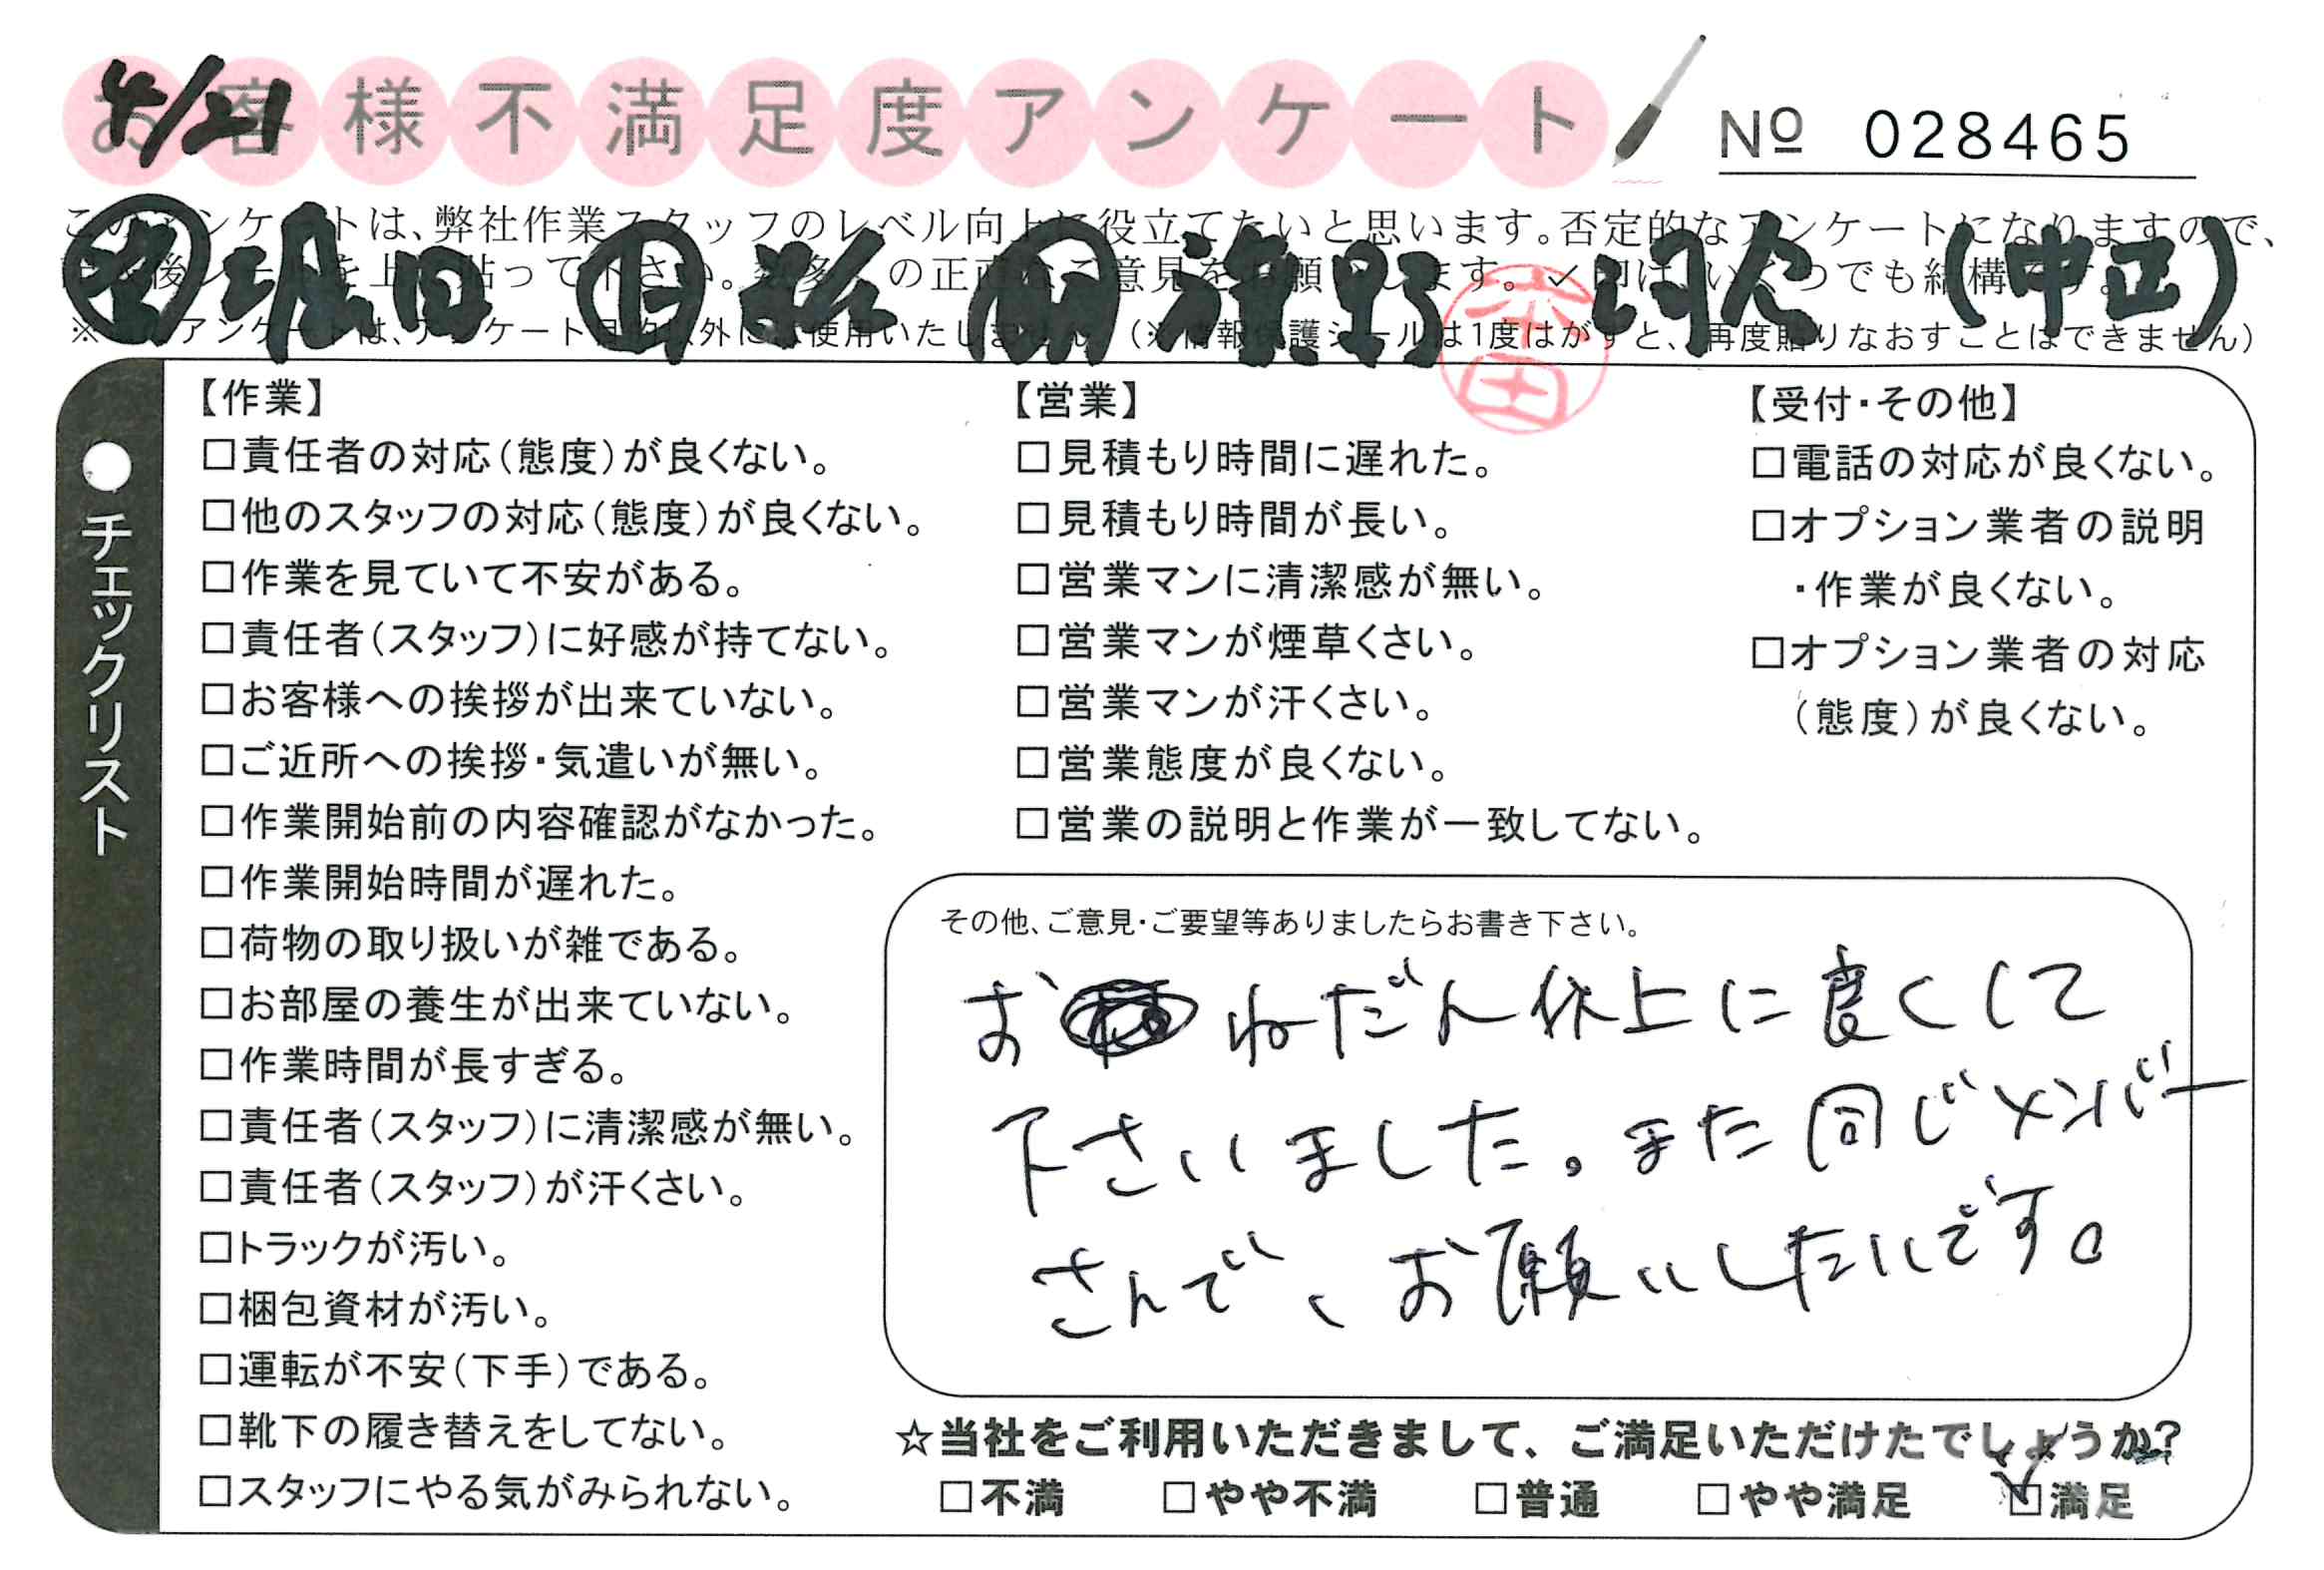 お客様不満足度アンケート
4/21
№ 028465
このアンケートは、弊社作業スタッフのレベル向上に役立てたいと思います。否定的なアンケートになりますので、
後シールを上に貼って下さい。数多くの正直なご意見をお願いします。✓印は、いくつでも結構です。
堀田 松 旗野 (中正)
※このアンケートは、アンケート目的以外には使用いたしません。(※情報保護シールは1度はがすと、再度貼りなおすことはできません)
本田
●チェックリスト
【作業】
□責任者の対応(態度)が良くない。
□他のスタッフの対応(態度)が良くない。
□作業を見ていて不安がある。
□責任者(スタッフ)に好感が持てない。
□お客様への挨拶が出来ていない。
□ご近所への挨拶・気遣いが無い。
□作業開始前の内容確認がなかった。
□作業開始時間が遅れた。
□荷物の取り扱いが雑である。
□お部屋の養生が出来ていない。
□作業時間が長すぎる。
□責任者(スタッフ)に清潔感が無い。
□責任者(スタッフ)が汗くさい。
□トラックが汚い。
□梱包資材が汚い。
□運転が不安(下手)である。
□靴下の履き替えをしてない。
□スタッフにやる気がみられない。
【営業】
□見積もり時間に遅れた。
□見積もり時間が長い。
□営業マンに清潔感が無い。
□営業マンが煙草くさい。
□営業マンが汗くさい。
□営業態度が良くない。
□営業の説明と作業が一致してない。
【受付・その他】
□電話の対応が良くない。
□オプション業者の説明
・作業が良くない。
□オプション業者の対応
(態度)が良くない。
その他、ご意見・ご要望等ありましたらお書き下さい。
おねだん以上に良くして
下さいました。また同じメンバー
さんで、お願いしたいです。
☆当社をご利用いただきまして、ご満足いただけたでしょうか?
□不満 □やや不満 □普通 □やや満足 ☑満足